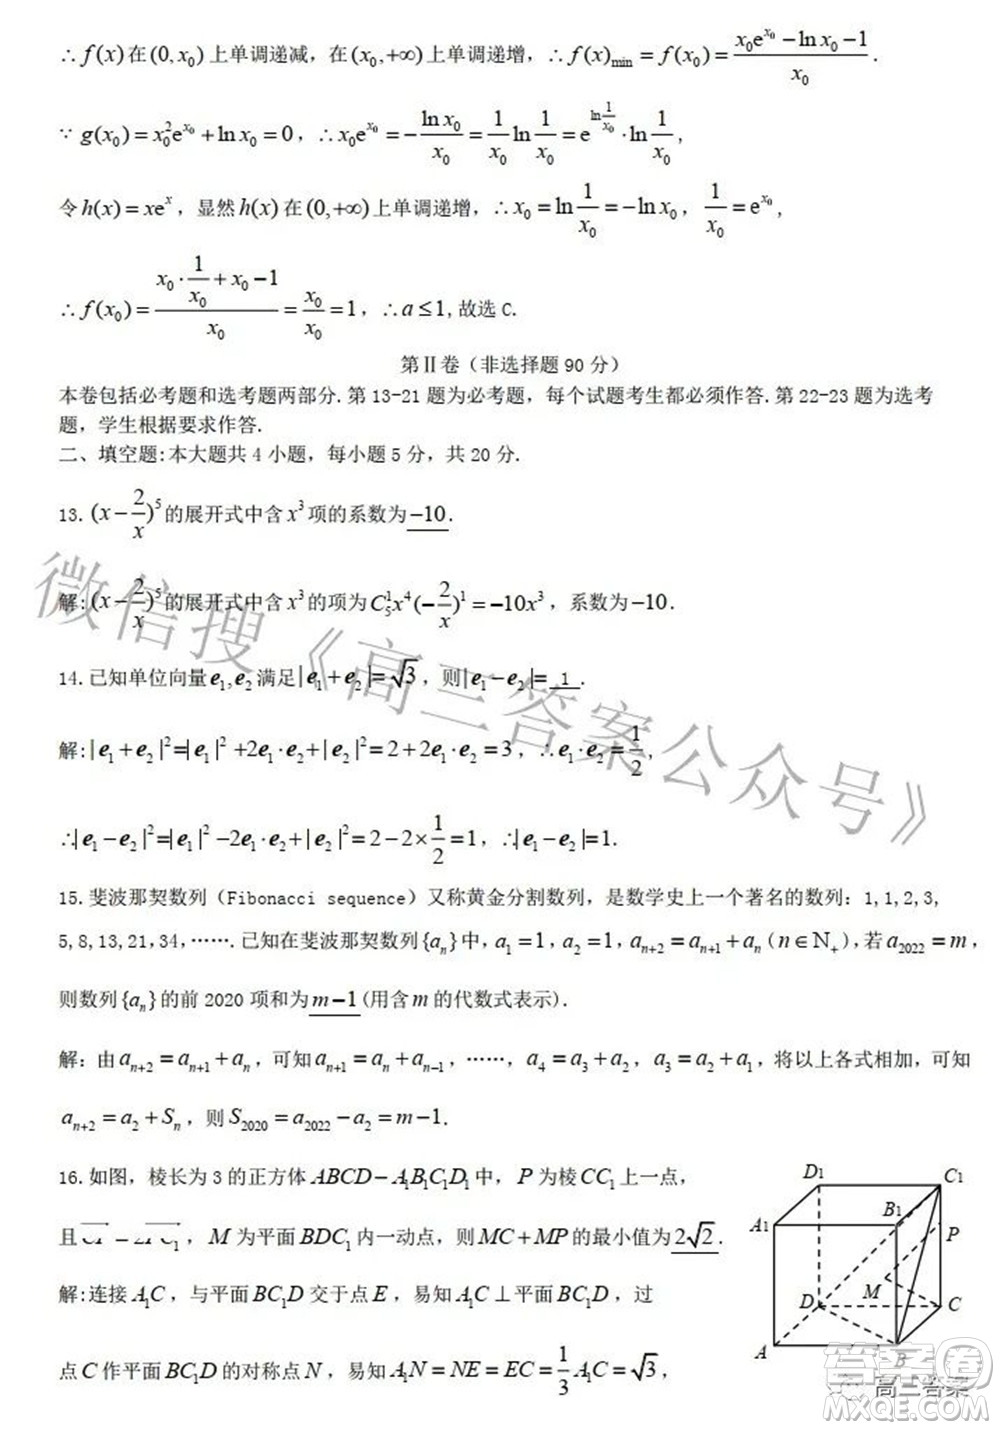 ∴ f(x)在(0, x₀)上单调递减，在(x₀, +∞)上单调递增，∴ f(x)min = f(x₀) = (x₀e^{x₀} − ln x₀ − 1)/x₀.
∵ g(x₀) = x₀²e^{x₀} + ln x₀ = 0，∴ x₀e^{x₀} = −(ln x₀)/x₀ = (1/x₀) ln(1/x₀) = e^{ln(1/x₀)} · ln(1/x₀)，
令 h(x) = xe^x，显然 h(x) 在(0, +∞)上单调递增，∴ x₀ = ln(1/x₀) = −ln x₀，1/x₀ = e^{x₀}，
∴ f(x₀) = (x₀ · (1/x₀) + x₀ − 1)/x₀ = x₀/x₀ = 1，∴ a ≤ 1,故选 C.
第Ⅱ卷（非选择题 90 分）
本卷包括必考题和选考题两部分.第 13-21 题为必考题，每个试题考生都必须作答.第 22-23 题为选考
题，学生根据要求作答.
二、填空题:本大题共 4 小题，每小题 5 分，共 20 分.
13. (x − 2/x)⁵的展开式中含 x³ 项的系数为 −10 .
解: (x − 2/x)⁵的展开式中含 x³ 的项为 C₅¹x⁴(−2/x)¹ = −10x³，系数为 −10.
14.已知单位向量 e₁, e₂ 满足 | e₁ + e₂ | = √3，则| e₁ − e₂ | = 1 .
解: | e₁ + e₂ |² = | e₁ |² + 2e₁ · e₂ + | e₂ |² = 2 + 2e₁ · e₂ = 3，∴ e₁ · e₂ = 1/2，
∴| e₁ − e₂ |² = | e₁ |² − 2e₁ · e₂ + | e₂ |² = 2 − 2 × 1/2 = 1，∴| e₁ − e₂ | = 1.
15.斐波那契数列（Fibonacci sequence）又称黄金分割数列，是数学史上一个著名的数列：1,1,2,3,
5,8,13,21,34,…….已知在斐波那契数列{aₙ}中，a₁ = 1，a₂ = 1，aₙ₊₂ = aₙ₊₁ + aₙ（n ∈ N₊），若 a₂₀₂₂ = m，
则数列{aₙ}的前 2020 项和为 m − 1 (用含 m 的代数式表示).
解：由 aₙ₊₂ = aₙ₊₁ + aₙ，可知 aₙ₊₁ = aₙ + aₙ₋₁，……，a₄ = a₃ + a₂，a₃ = a₂ + a₁，将以上各式相加，可知
aₙ₊₂ = a₂ + Sₙ，则 S₂₀₂₀ = a₂₀₂₂ − a₂ = m − 1.
16.如图，棱长为 3 的正方体 ABCD − A₁B₁C₁D₁ 中，P 为棱 CC₁ 上一点，
且，M 为平面 BDC₁ 内一动点，则 MC + MP 的最小值为 2√2 .
解:连接 A₁C，与平面 BC₁D 交于点 E，易知 A₁C ⊥ 平面 BC₁D，过
点 C 作平面 BC₁D 的对称点 N，易知 A₁N = NE = EC = (1/3)A₁C = √3，
D₁ C₁
A₁ B₁
P
M
D C
A B
微信搜《高三答案公众号》
高三答案
答案圈
MXQE.COM